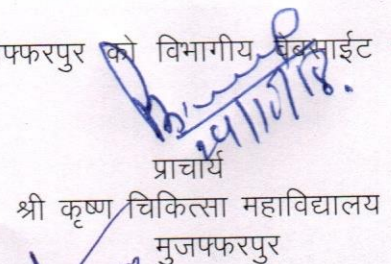 फ्फरपुर को विभागीय वेबसाईट
प्राचार्य
श्री कृष्ण चिकित्सा महाविद्यालय
मुजफ्फरपुर